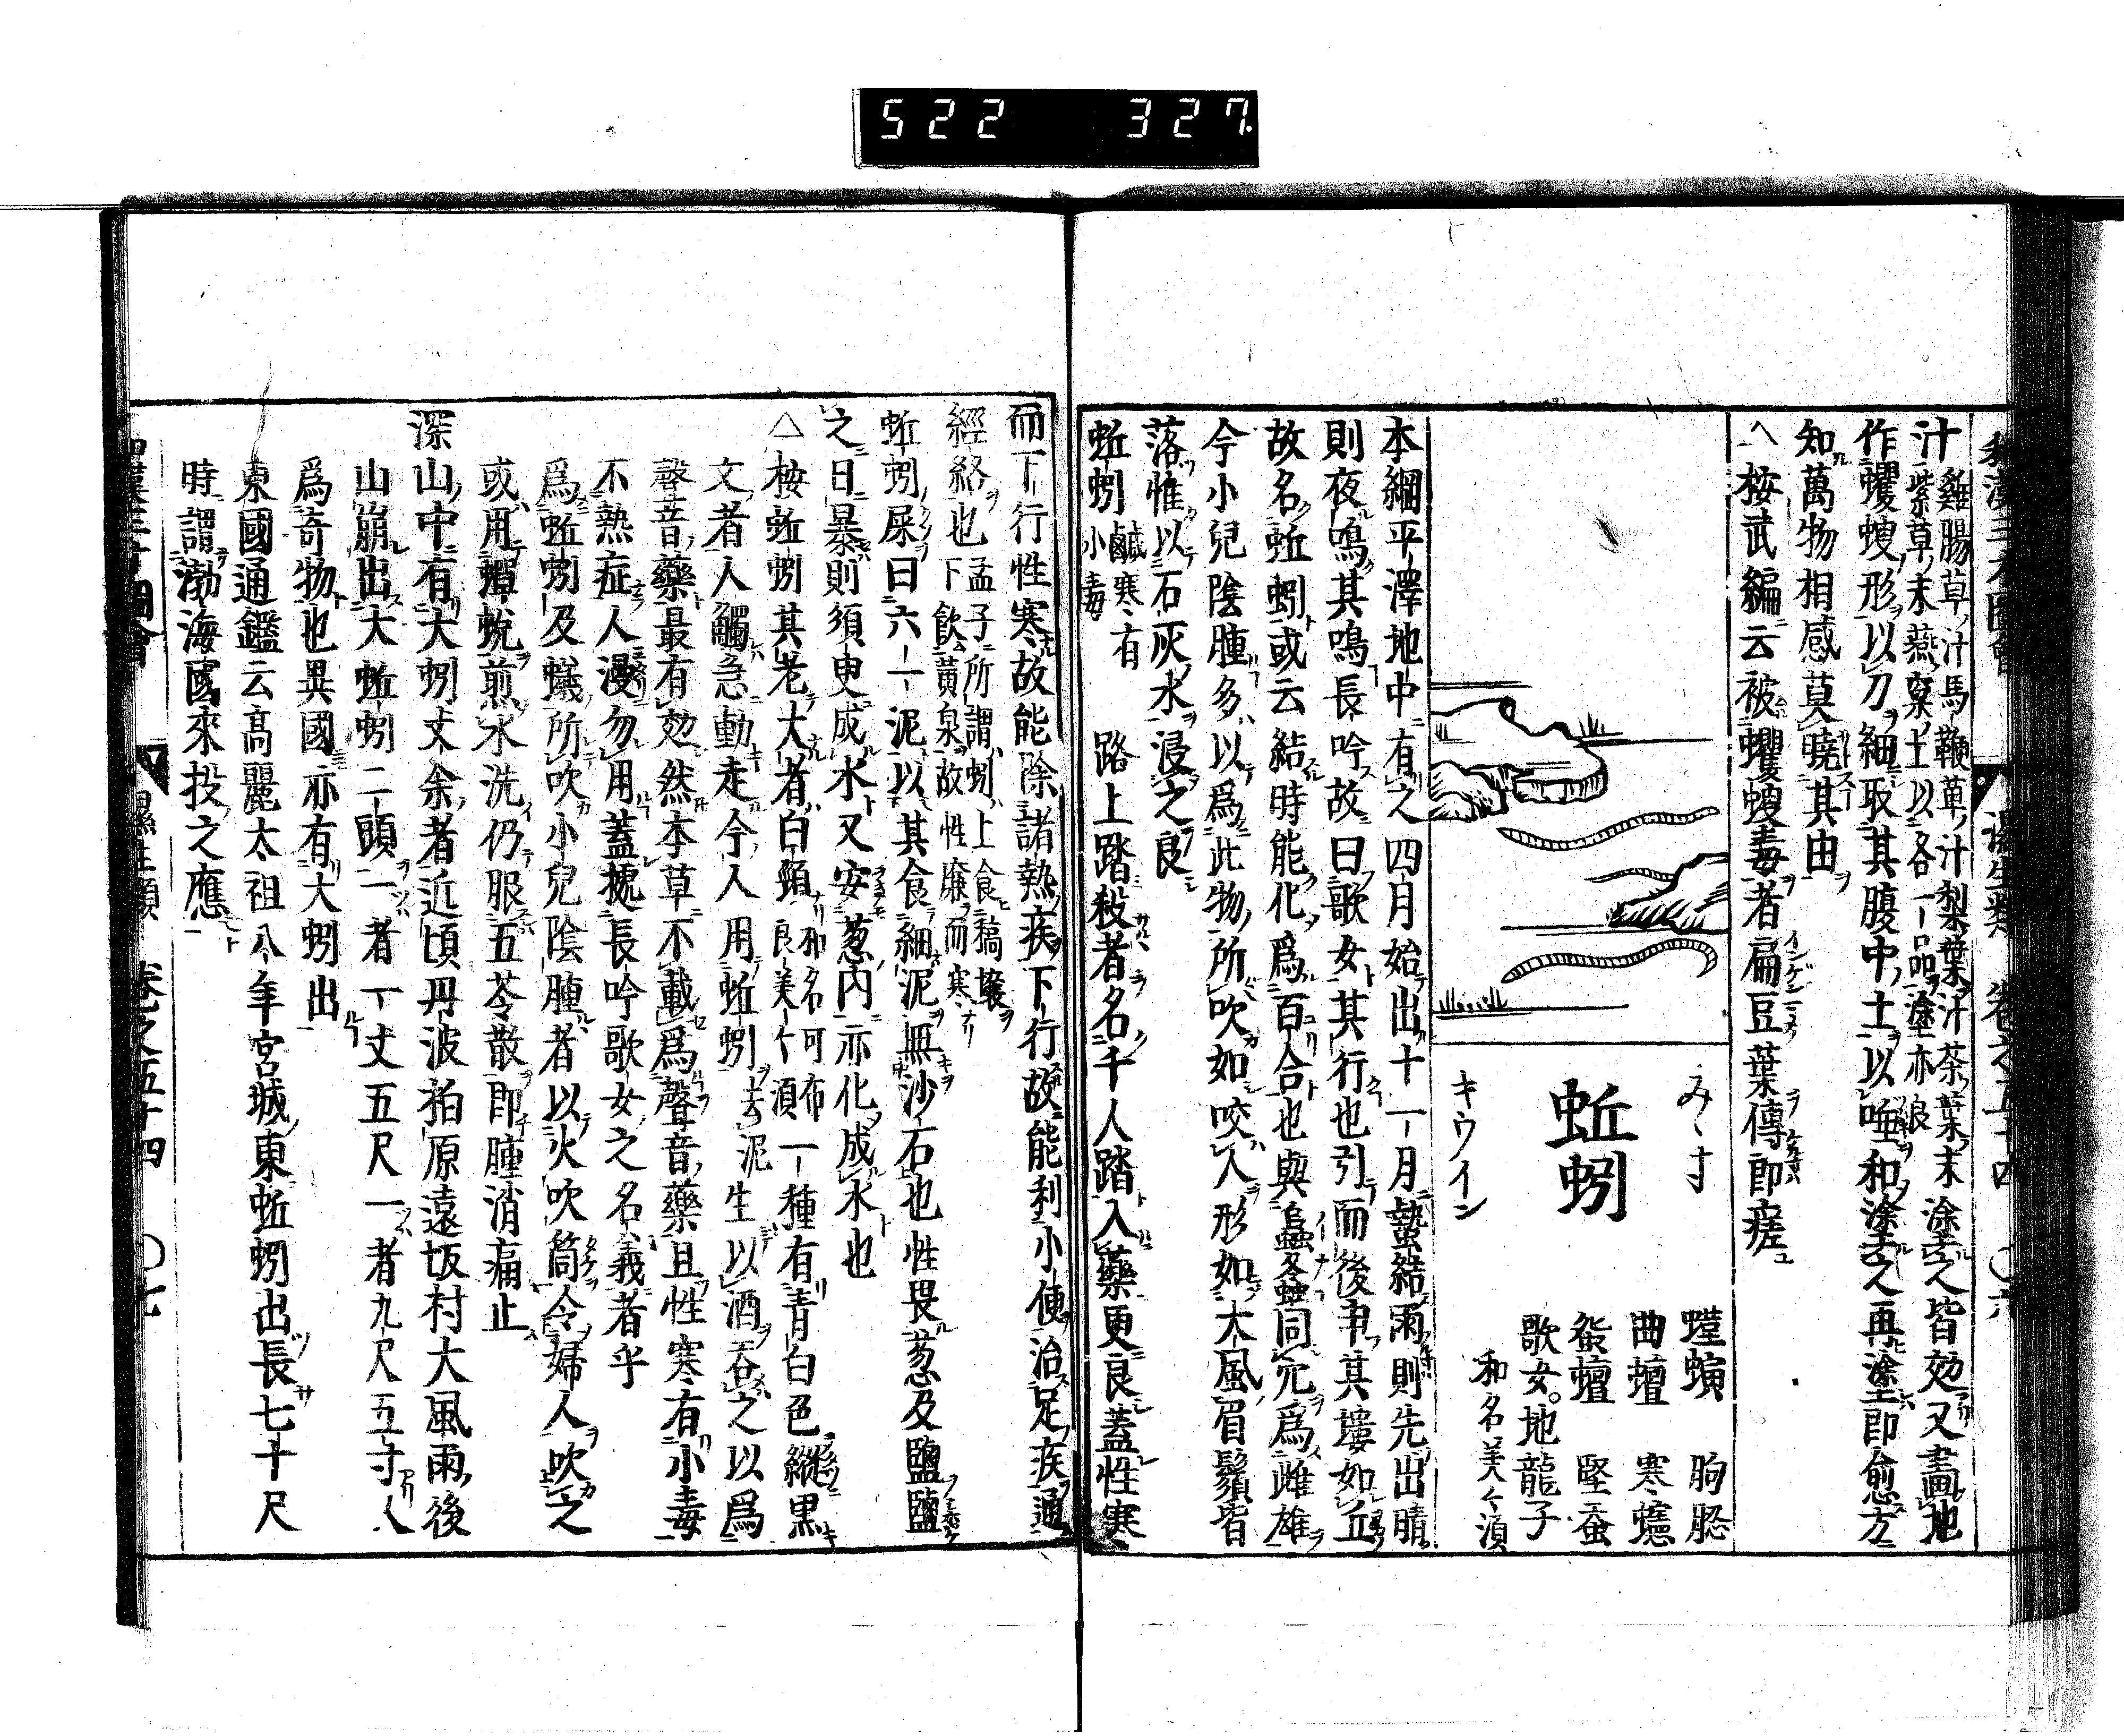 522 327
和漢三才圖會 濕生類 卷之五十四 〇六
汁 雞腸草ノ汁馬鞭草ノ汁梨葉ノ汁茶ノ葉ノ末
紫草ノ末燕窠ノ土以各一品塗亦良 塗之皆効又畫地
作蠼螋形以刀細取其腹中土以唾和塗之再塗即愈方
知萬物相感莫曉其由
△按武編云被蠼螋毒者扁豆葉傅即瘥
みゝず
蚯蚓
キウイン
螼螾 朐䏰
曲蟺 寒蟪
䖤蟺 堅蚕
歌女 地龍子
和名美々須
本綱平澤地中有之四月始出十一月蟄結雨則先出晴
則夜鳴其鳴長吟故曰歌女其行也引而後申其塿如丘
故名蚯蚓或云結時能化爲百合也與螽同穴爲雌雄
今小兒陰腫多以爲此物所吹如咬人形如大風眉鬚皆
落惟以石灰水浸之良
蚯蚓 鹹寒有
小毒 路上踏殺者名千人踏入藥更良蓋性寒
而下行性寒故能除諸熱疾下行故能利小便治足疾通
經絡也 孟子所謂蚓上食稿壤
下飲黃泉故性廉而寒
蚯蚓屎曰六一泥以其食細泥無沙石也性畏葱及鹽鹽
之日暴則須臾成水又安葱內亦化成水也
△按蚯蚓其老大者白頸 和名可布
良美々須 一種有青白色縱黑
文者人觸急動走今人用蚯蚓去泥生以酒呑之以爲
聲音藥最有効然本草不載爲聲音藥且性寒有小毒
不熱症人漫勿用蓋據長吟歌女之名義者乎
爲蚯蚓及蟻所吹小兒陰腫者以火吹筒令婦人吹之
或用蟬蛻煎水洗仍服五苓散即腫消痛止
深山中有大蚓丈余者近頃丹波柏原遠坂村大風雨後
山崩出大蚯蚓二頭一者一丈五尺一者九尺五寸人
爲奇物也異國亦有大蚓出
東國通鑑云高麗太祖八年宮城東蚯蚓出長七十尺
時謂渤海國來投之應
和漢三才圖會 四 濕生類 卷之五十四 〇七